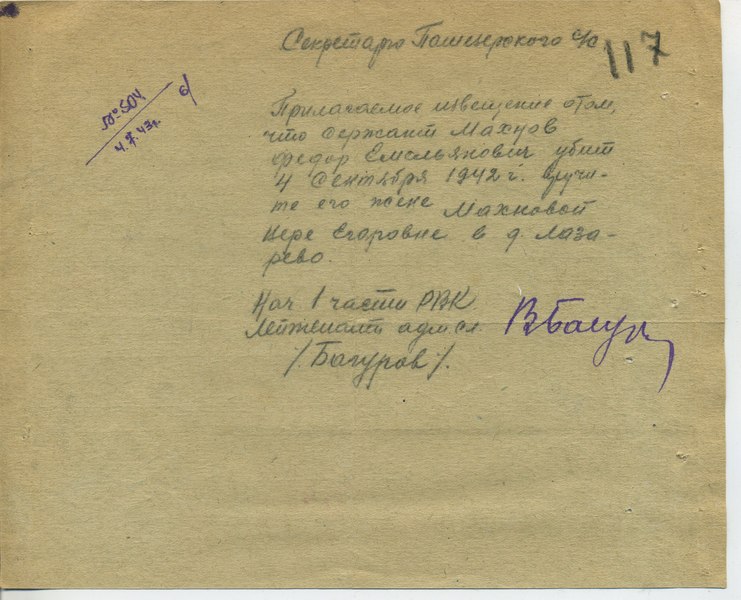 Секретарю Пашенского с/с
117
№ 504
4.7.43г.
Прилагаемое извещение о том,
что сержант Махнов
Федор Емельянович убит
4 Сентября 1942 г. вручи-
те его жене Махновой
Вере Егоровне в д. Лаза-
рево.
Нач 1 части РВК
Лейтенант адм сл.
/. Багуров /.